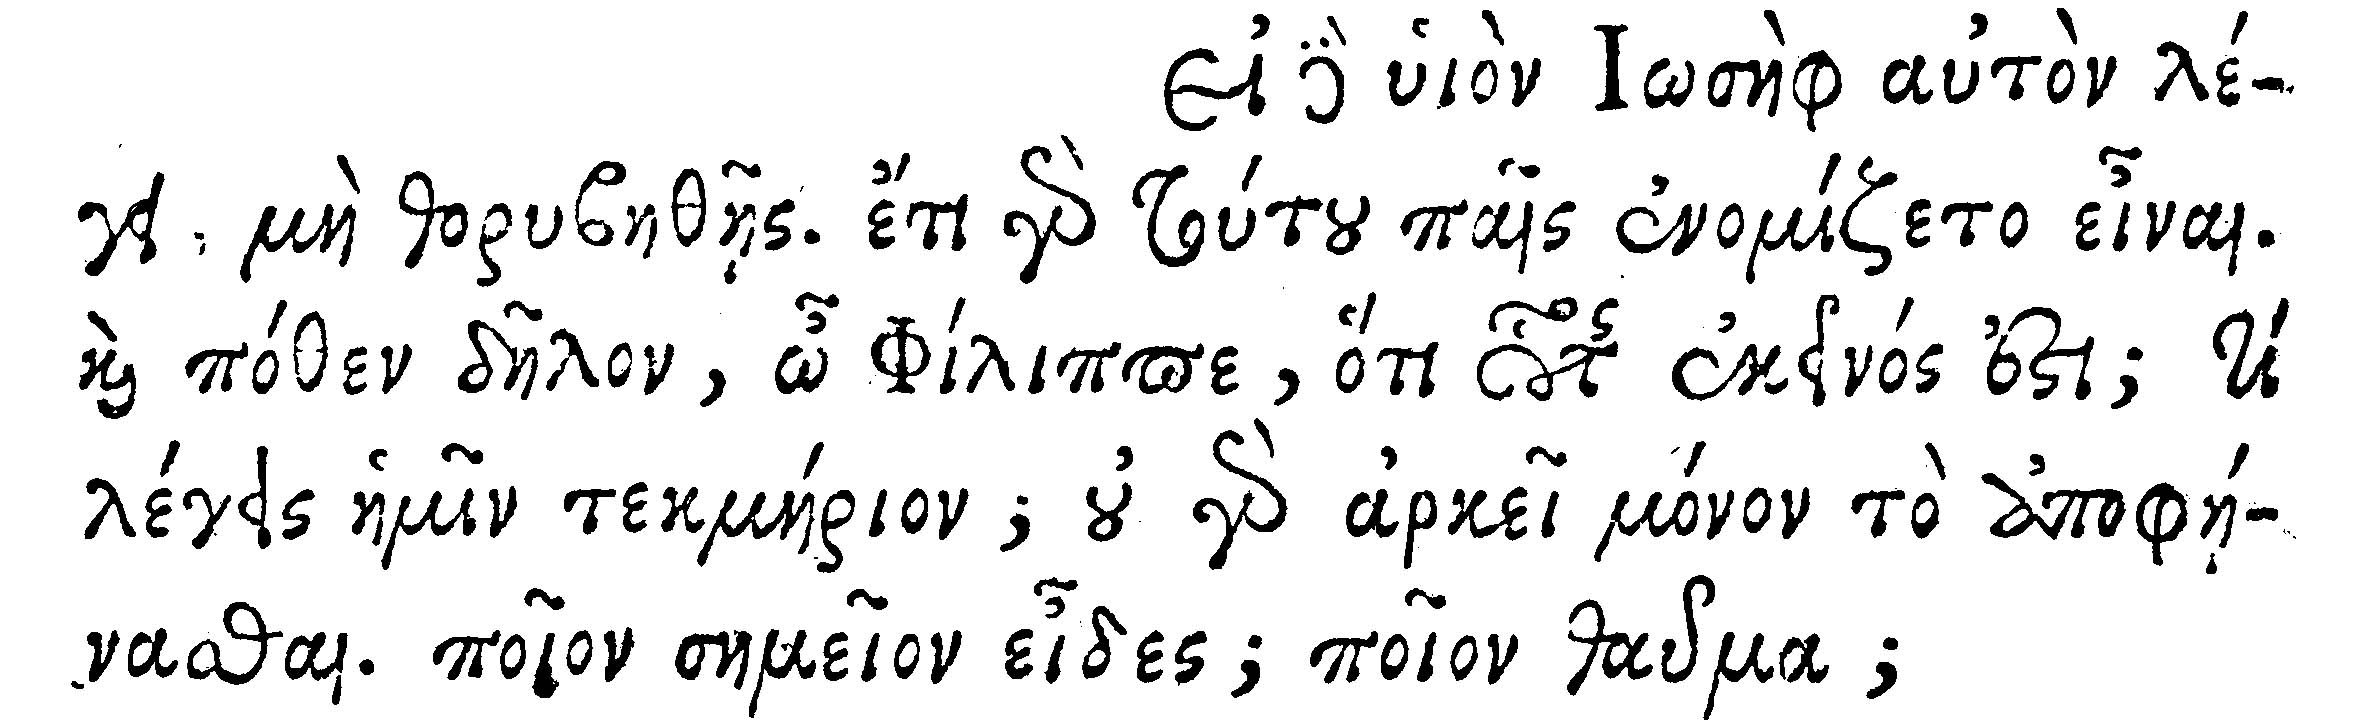 Εἰ δὲ ὑιὸν Ιωσὴφ αὐτὸν λέ-
γει, μὴ θορυβηθῇς. ἔτι γὰρ τούτου παῖς ἐνομίζετο εἶναι.
καὶ πόθεν δῆλον, ὦ Φίλιππε, ὅτι οὗτος ἐκεῖνός ἐστι; τί
λέγεις ἡμῖν τεκμήριον; οὐ γὰρ ἀρκεῖ μόνον τὸ ἀποφή-
νασθαι. ποῖον σημεῖον εἶδες; ποῖον θαῦμα;